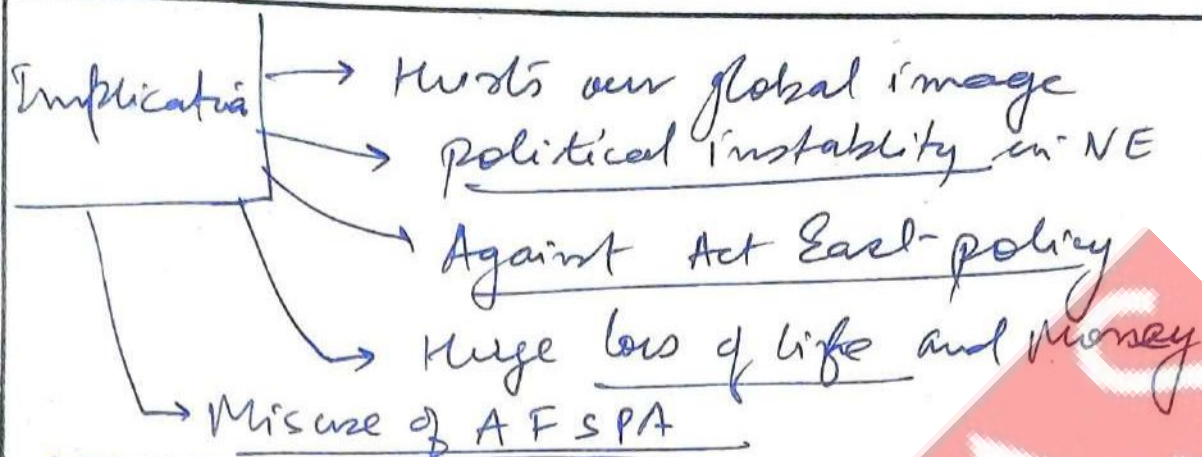 Implication
Hurts our global image
political instablity in NE
Against Act East policy
Huge loss of life and Money
Misuse of AFSPA